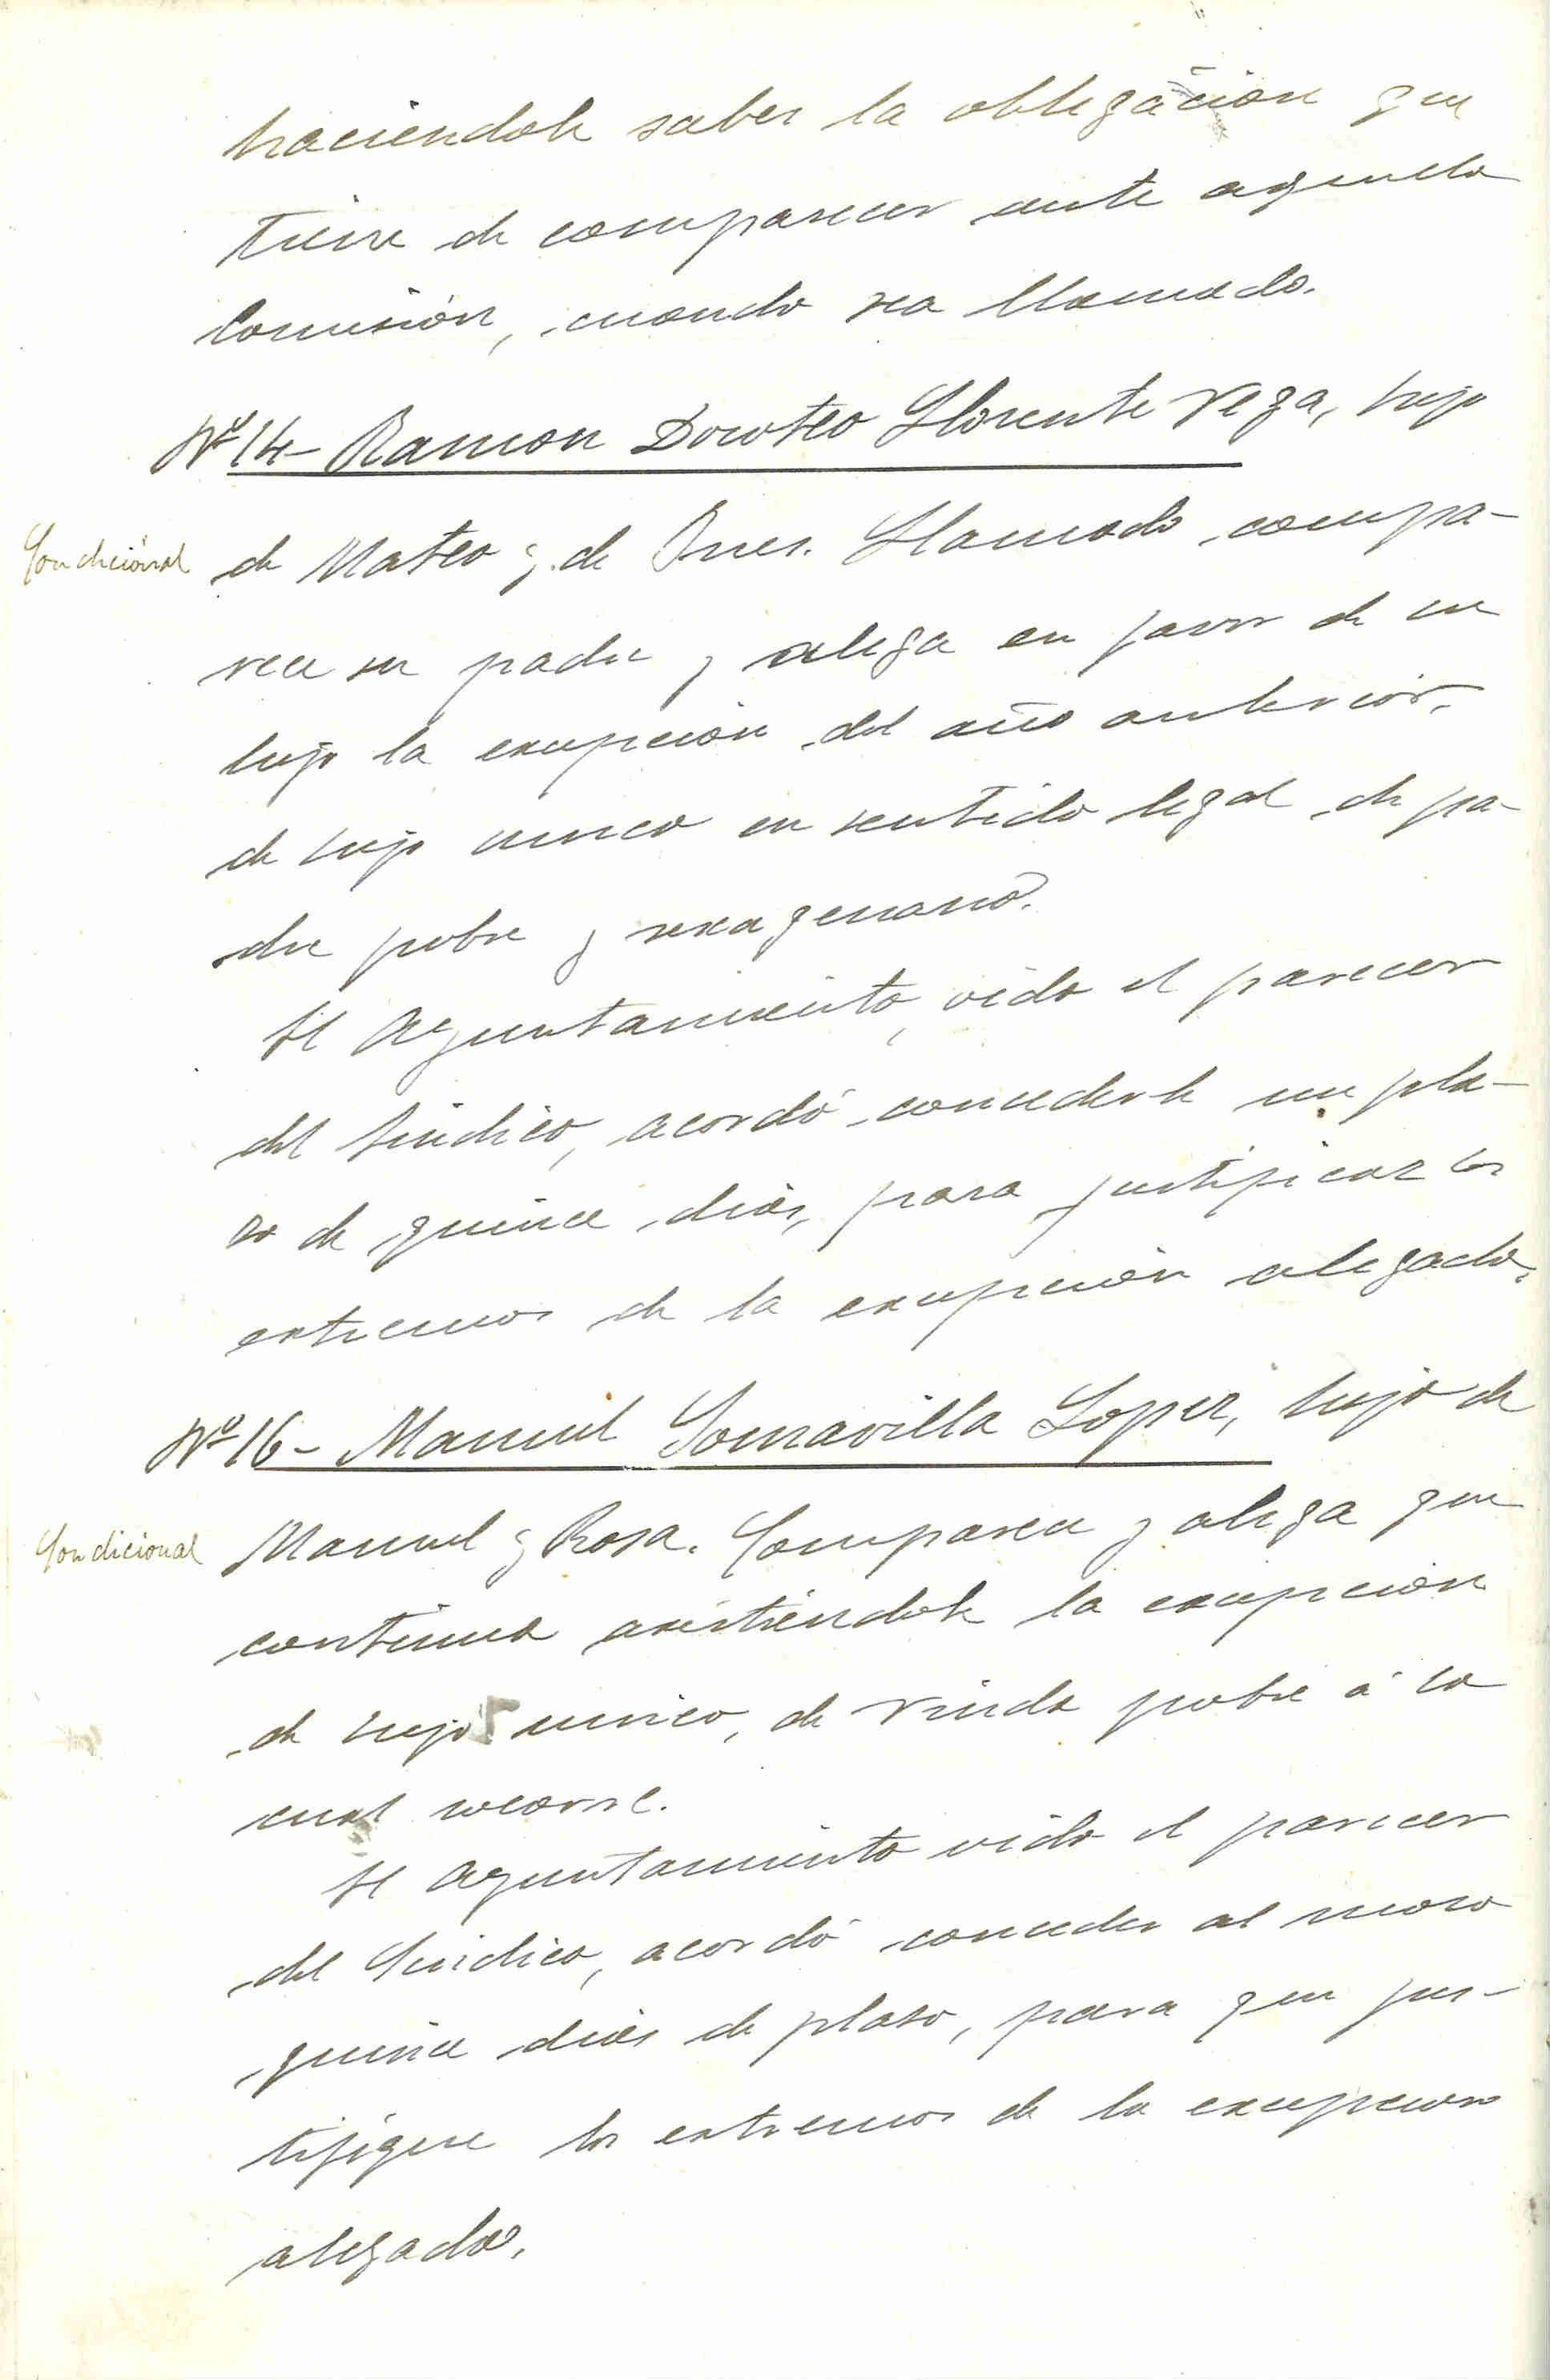 haciendole saber la obligación que
tiene de comparecer ante aquella
Comisión, cuando sea llamado.
Nº 14- Ramon Doroteo Llorente Vega, hijo
Condicional
de Mateo y de Ines. Llamado compa-
rece su padre y alega en favor de su
hijo la excepción del año anterior,
de hijo unico en sentido legal de pa-
dre pobre y sexagenario.
El Ayuntamiento, oido el parecer
del Sindico, acordó concederle un pla-
zo de quince dias, para justificar los
extremos de la excepción alegada.
Nº 16- Manuel Somavilla Lopez, hijo de
Condicional
Manuel y Rosa. Comparece y alega que
continua asistiendole la excepcion
de hijo unico, de viuda pobre á la
cual socorre.
El Ayuntamiento oido el parecer
del Sindico, acordó conceder al mozo
quince dias de plazo, para que jus-
tifique los extremos de la excepcion
alegada.